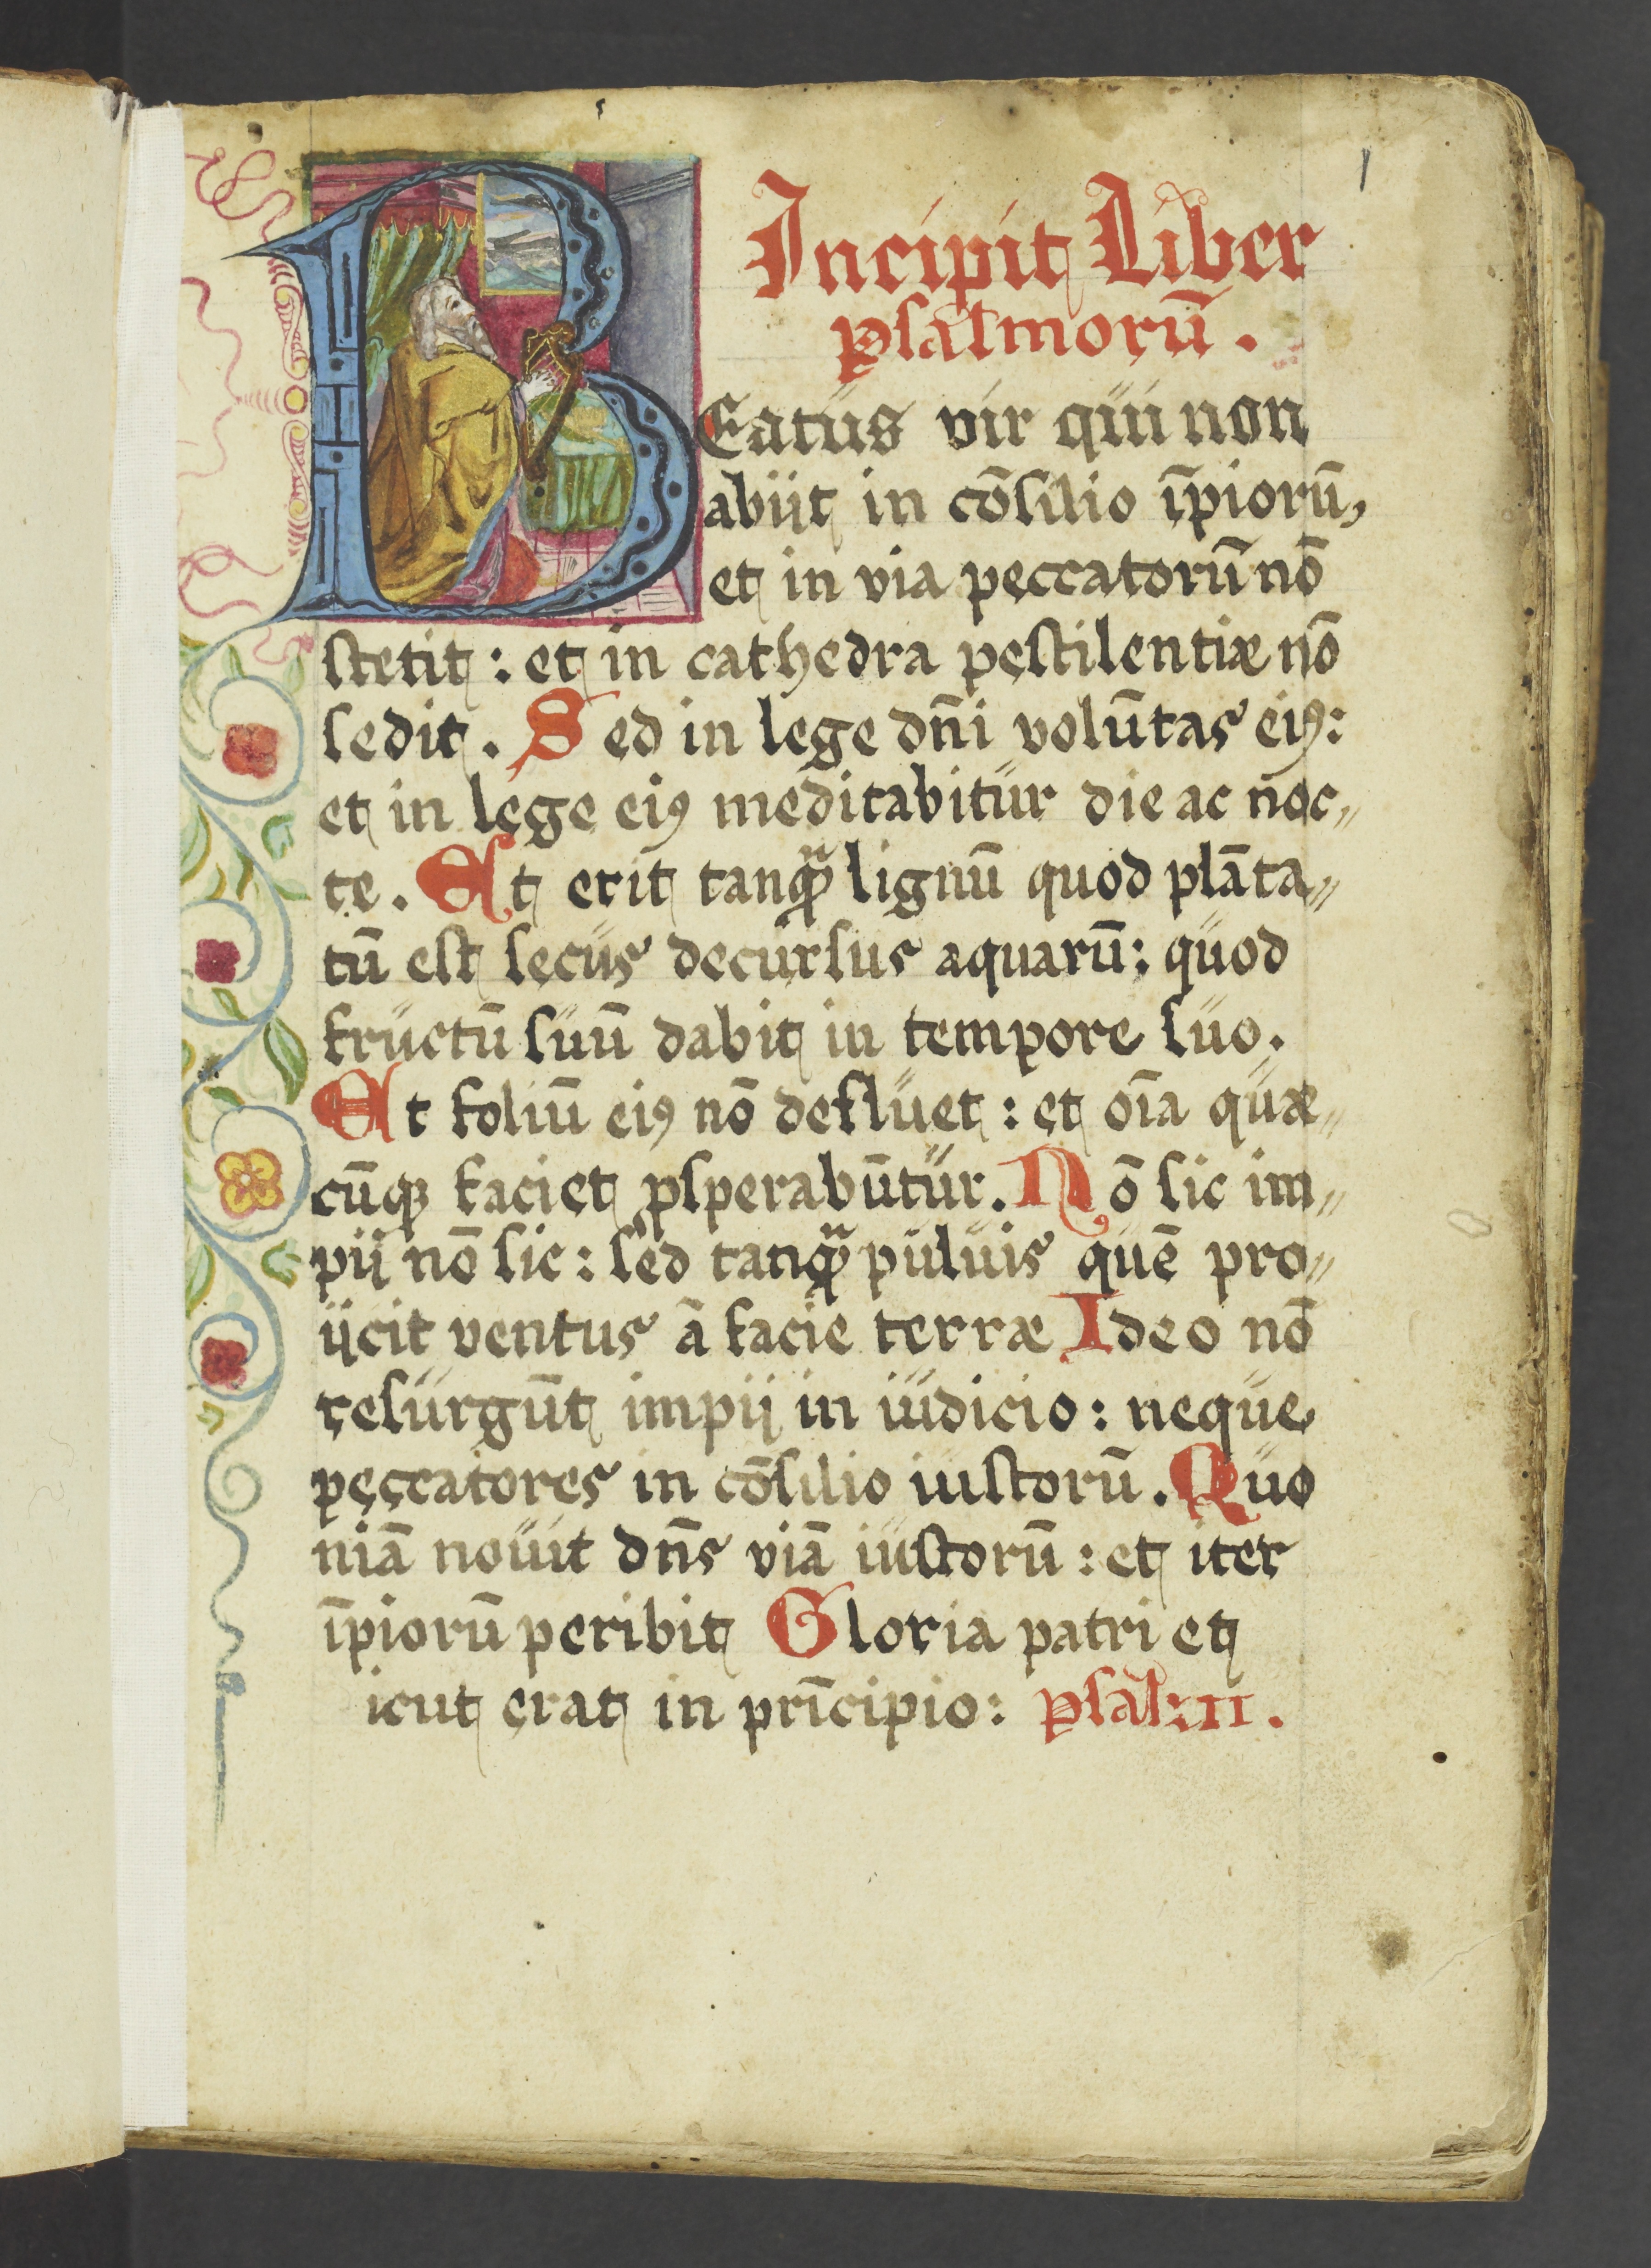 1
Incipit Liber
psalmorū.
BEatus vir qui non
abijt in cōsilio īpiorū,
et in via peccatorū nō
stetit: et in cathedra pestilentiæ nō
sedit. Sed in lege dn̄i volūtas eiꝰ:
et in lege eiꝰ meditabitur die ac noc„
te. Et erit tanꝙᷓ lignū quod plāta„
tū est secus decursus aquarū: quod
fructū suū dabit in tempore suo.
Et foliū eiꝰ nō defluet: et oīa quæ„
cūqꝫ faciet ꝓsperabūtur. Nō sic im„
pij nō sic: sed tanꝙᷓ puluis quē pro„
ijcit ventus ā facie terræ Ideo nō
resurgūt impij in iudicio: neque
peccatores in cōsilio iustorū. Quo
niā nouit dn̄s viā iustorū: et iter
īpiorū peribit Gloria patri et
icut erat in prīcipio: psal: II.